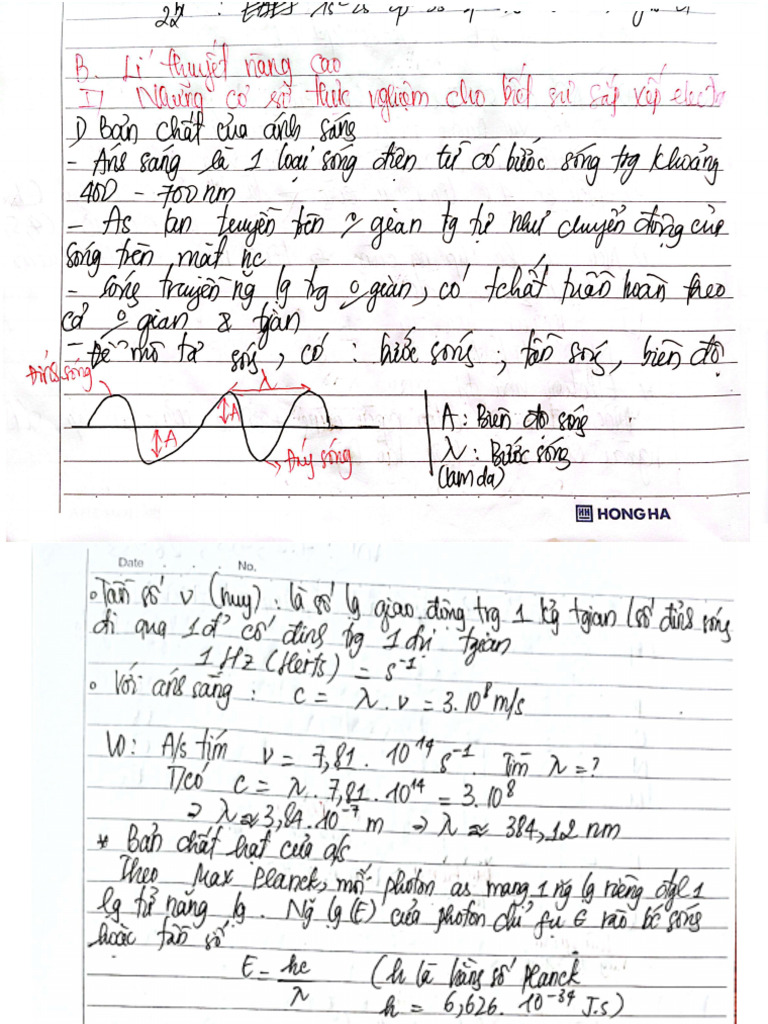 22
B. Lí thuyết nâng cao
I) Những cơ sở thực nghiệm cho biết sự sắp xếp elect
1) Bản chất của ánh sáng
- Áns sáng là 1 loại sóng điện từ có bước sóng trg khoảng
400 - 700 nm
- As lan truyền trên gian tg tự như chuyển động của
sóng trên mặt nc
- sóng truyền ng lg trg gian, có tchất tuần hoàn theo
cả gian & tgian
- Để mô tả sóng, có : bước sóng ; tần sóng, biên độ
Đỉnh sóng
λ
A
A
Đáy sóng
A : Biên độ sóng
λ : Bước sóng
(lamda)
HONG HA
Date . . . No.
Tần số ν (nuy) : là số lg giao động trg 1 kg tgian (số đỉnh sóng
đi qua 1 đ' cố định trg 1 đvị tgian
1 Hz (Herts) = s⁻¹
Với áns sáng : c = λ . ν = 3.10⁸ m/s
VD : A/s tím ν = 7,81 . 10¹⁴ s⁻¹. Tìm λ = ?
T/có c = λ . 7,81 . 10¹⁴ = 3.10⁸
⇒ λ ≈ 3,84.10⁻⁷ m ⇒ λ ≈ 384,12 nm
* Bản chất hạt của a/s
Theo Max Planck, mỗi photon as mang 1 ng lg riêng đgl 1
lg tử năng lg. Ng lg (E) của photon chỉ fụ  vào bc sóng
hoặc tần số
E = hc / λ (h là hằng số Planck
h = 6,626 . 10⁻³⁴ J.s)